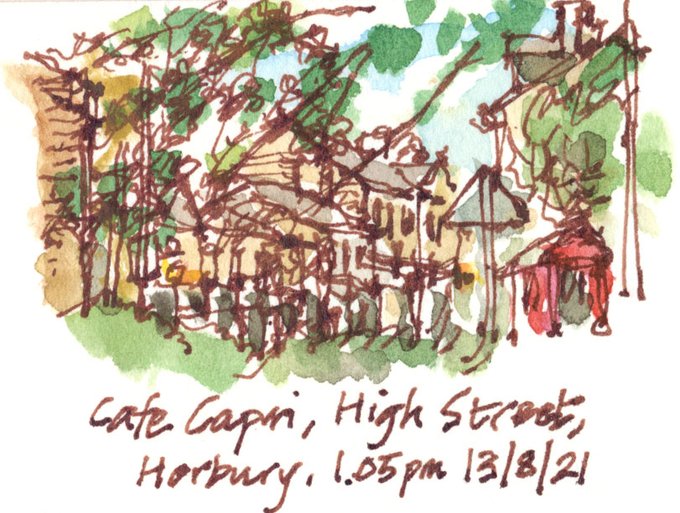 Cafe Capri, High Street,
Horbury. 1.05pm 13/8/21